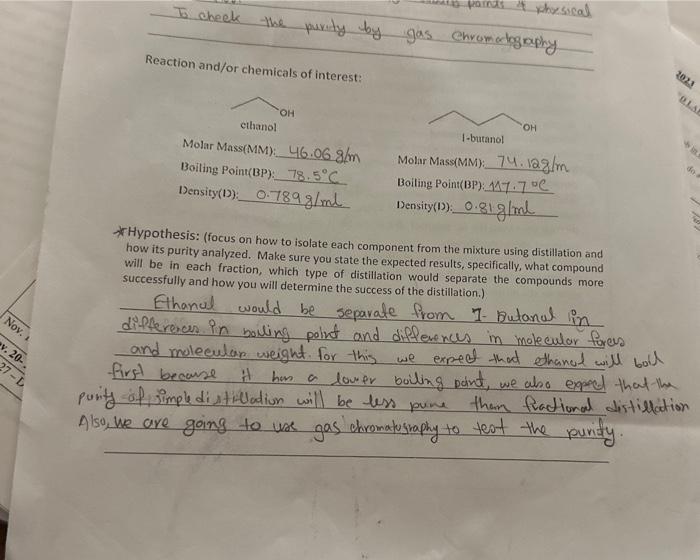 points & physical
To check the purity by gas chromatography
Reaction and/or chemicals of interest:
OH
ethanol
Molar Mass(MM): 46.06 g/m
Boiling Point(BP): 78.5°C
Density(D): 0.789 g/mL
OH
1-butanol
Molar Mass(MM): 74.12g/m
Boiling Point(BP): 117.7°C
Density(D): 0.81g/mL
*Hypothesis: (focus on how to isolate each component from the mixture using distillation and
how its purity analyzed. Make sure you state the expected results, specifically, what compound
will be in each fraction, which type of distillation would separate the compounds more
successfully and how you will determine the success of the distillation.)
Ethanol would be separate from 1-Butanol in
differences in boiling point and differences in molecular forces
and molecular weight. For this we expect that ethanol will boil
first because it has a lower boiling point, we also expect that the
purity of simple distillation will be less pure than fractional distillation
Also, we are going to use gas chromatography to test the purity.
Nov.
v. 20-
27-
2021